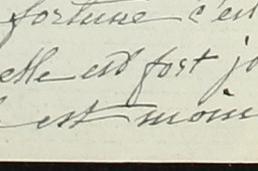 fortune c'est
elle est fort jo
est moin